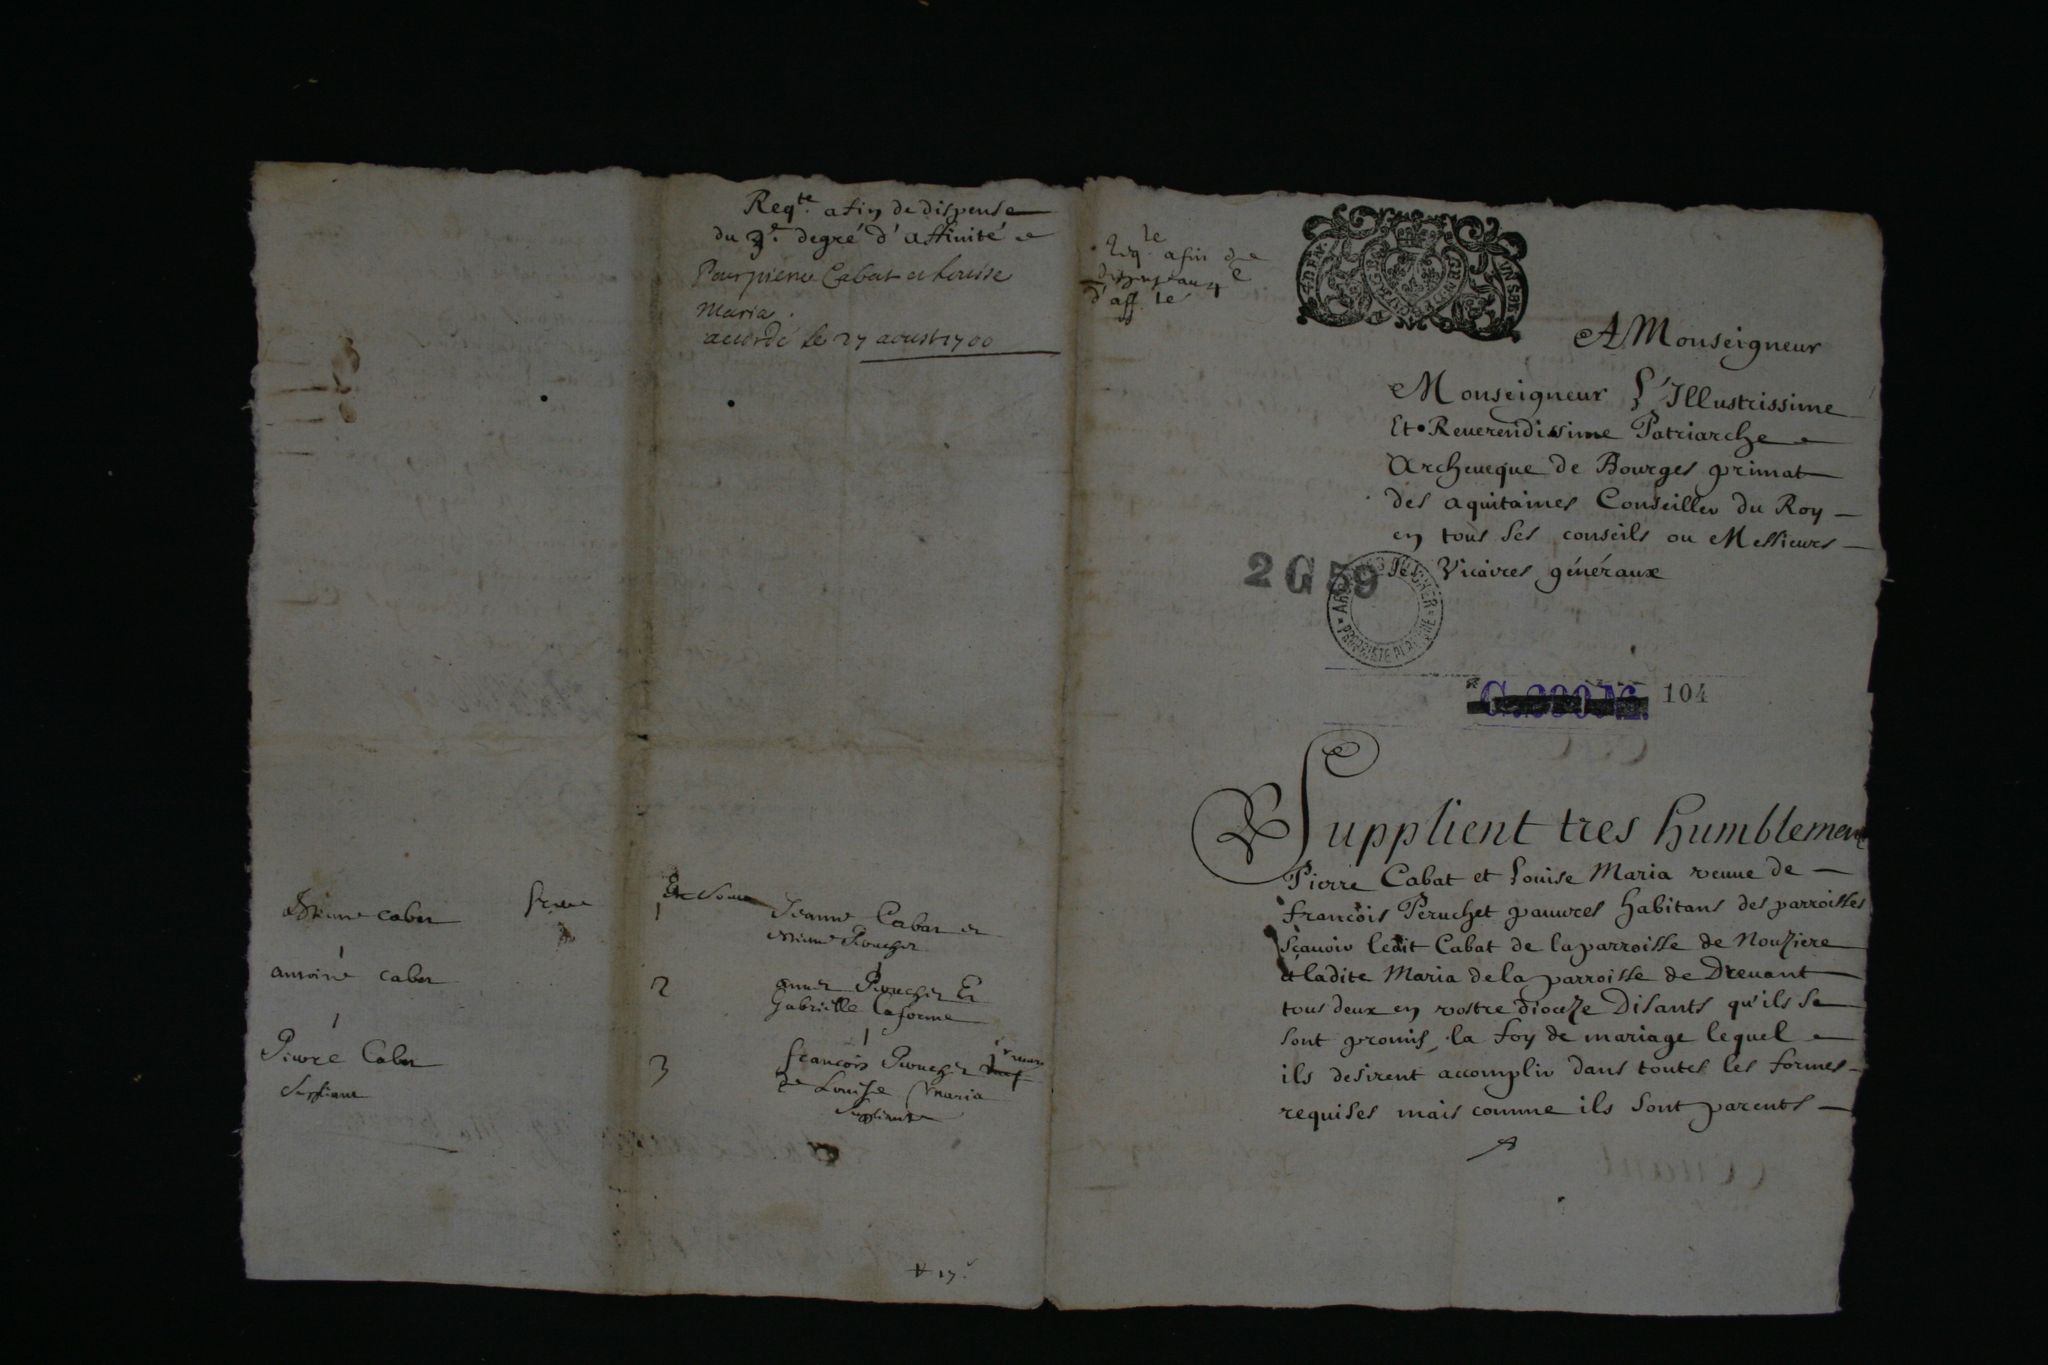 Reqte. afin de dispense
du 3e. degré d'affinité
Pour pierre Cabat et louise
Maria.
accordé le 27 aoust 1700
Estienne cabat
frere
et soeur
1
Jeanne Cabat et
Peruchet
antoine cabat
2
Peruchet Et
Gabrielle laforme
Pierre Cabat
Suppliant
3
francois Peruchet 1r mary
de Louise Maria
Suppliante
17
Reqte afin de
dispense au 4e
d'affte
A Monseigneur
Monseigneur L'Illustrissime
Et Reuerendissime Patriarche
Archeueque de Bourges primat
des aquitaines Conseiller du Roy
en tous ses conseils ou Messieurs
ses Vicaires généraux
2 G 59
ARCHIVES DU CHER
PROPRIETE PUBLIQUE
104
Supplient tres humblement
Pierre Cabat et Louise Maria veuue de
francois Peruchet pauures habitans des parroisses
sçauoir ledit Cabat de la parroisse de Nouziere
et ladite Maria de la parroisse de Dreuant
tous deux en vostre dioceze Disants qu'ils se
sont promis la foy de mariage lequel
ils desirent accomplir dans toutes les formes
requises mais comme ils sont parents